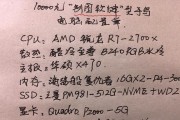 10000元"制图软件"型号与
电脑配置单
CPU: AMD 锐龙 R7-2700X
散热: 酷冷至尊 B240RGB水冷
主板: 华硕 X470
内存: 16GX2
SSD: 三星PM981-512G-NVME+WD2
显卡: Quadro P2000-5G